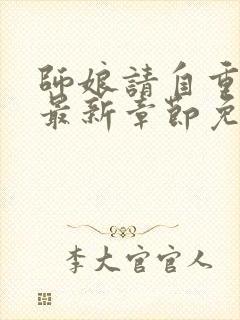 師娘請自重
最新章節免
李大官官人